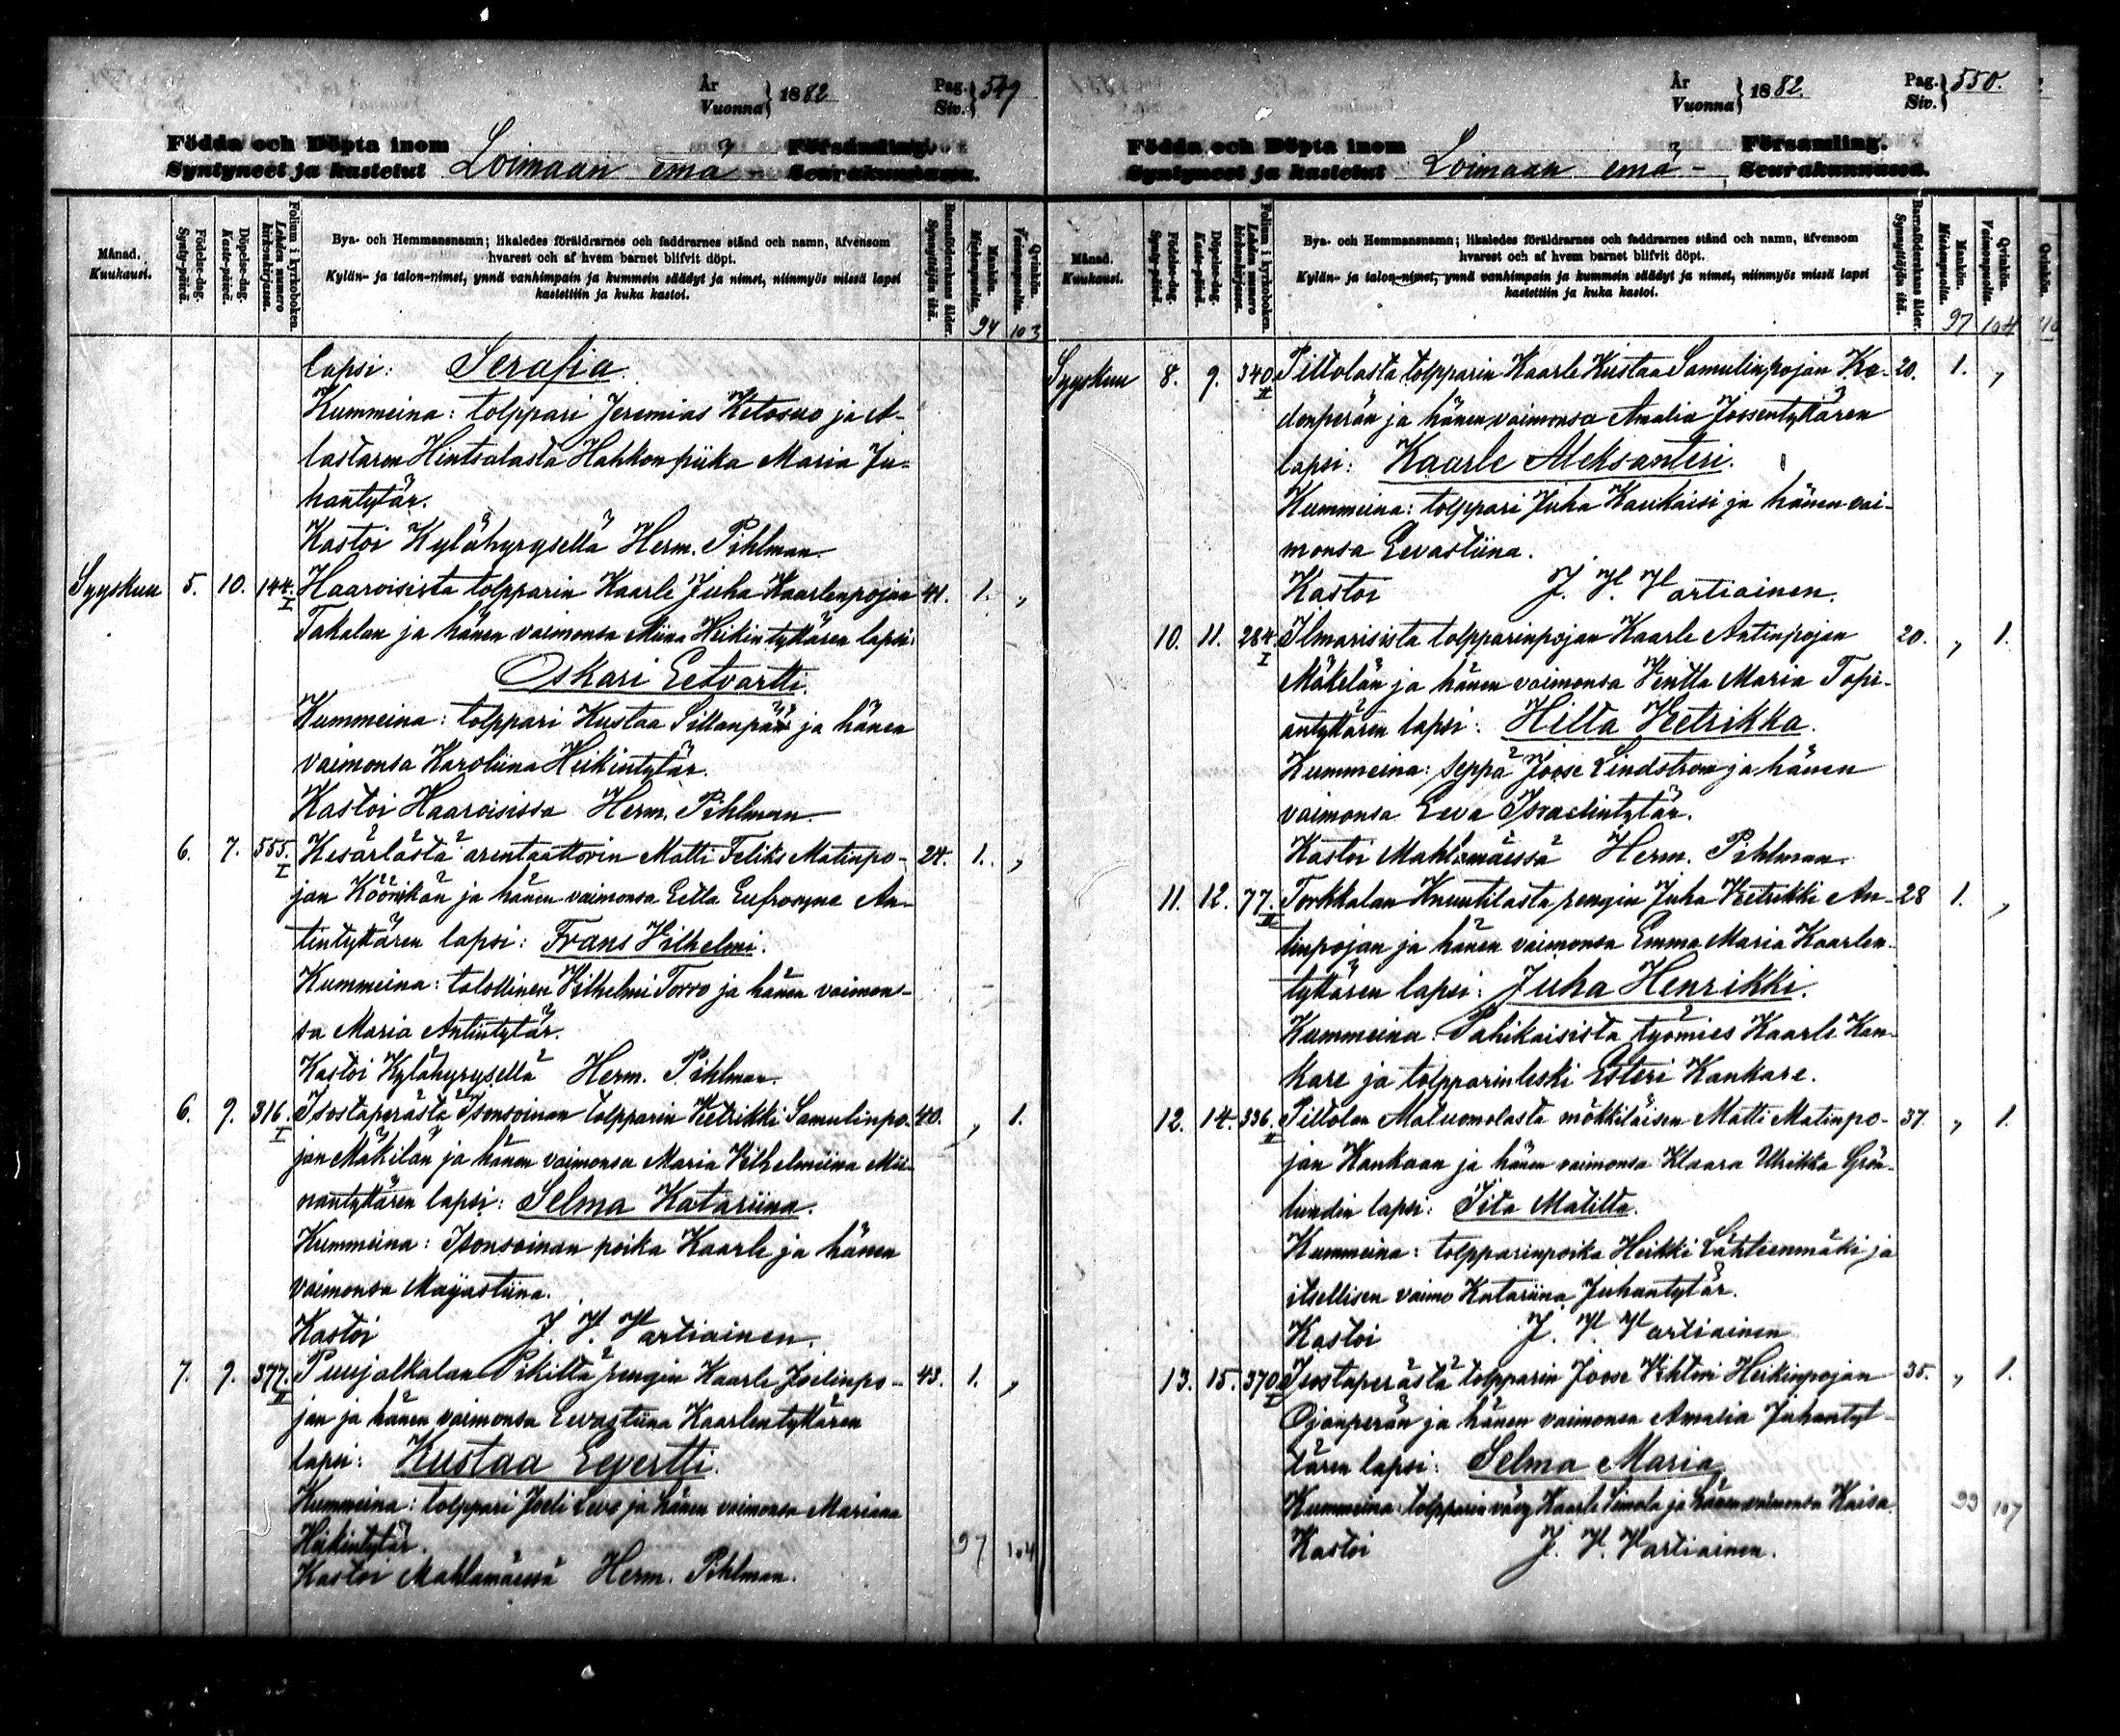 År
Vuonna } 1882
Pag.
Siv. } 549
Födda och Döpta inom
Syntyneet ja kastetut Loimaan emä - Församling.
Seurakunnassa.
Månad.
Kuukausi.
Födelse-dag.
Synty-päivä.
Döpelse-dag.
Kaste-päivä.
Folium i kyrkoboken.
Lehden numero kirkonkirjassa.
Bya- och Hemmansnamn; likaledes föräldrarnes och faddrarnes stånd och namn, äfvensom
hvarest och af hvem barnet blifvit döpt.
Kylän- ja talon-nimet, ynnä vanhimpain ja kummein säädyt ja nimet, niinmyös missä lapsi
kastettiin ja kuka kastoi.
Barnaföderskans ålder.
Synnyttäjän ikä.
Mankön.
Miehenpuolia.
Qvinkön.
Vaimonpuolia.
94 103
lapsi: Serafia.
Kummeina: tolppari Jeremias Ketosuo ja A-
lastaron Hintsalasta Hahkon piika Maria Ju-
hantytär.
Kastoi Kylähyrysellä Herm. Pihlman.
Syyskuu 5. 10. 144. I Haaroisista tolpparin Kaarle Juha Kaarlenpojan 41. 1. "
Takalan ja hänen vaimonsa Miina Heikintyttären lapsi:
Oskari Eetvartti.
Kummeina: tolppari Kustaa Sillanpää ja hänen
vaimonsa Karoliina Heikintytär.
Kastoi Haaroisissa Herm. Pihlman.
6. 7. 555. I Kesärlästä arentaattorin Matti Feliks Matinpo- 24. 1. "
jan Köönikän ja hänen vaimonsa Eetla Eufrosyne An-
tintyttären lapsi: Frans Vilhelmi.
Kummeina: talollinen Vilhelmi Torro ja hänen vaimon-
sa Maria Antintytär.
Kastoi Kylähyrysellä Herm. Pihlman.
6. 9. 316. I Isostaperästä Isonsoinan tolpparin Vetrikki Samulinpo- 40. " 1.
jan Mäkilän ja hänen vaimonsa Maria Vilhelmiina Mii-
nantyttären lapsi: Selma Katariina.
Kummeina: Isonsoinan poika Kaarle ja hänen
vaimonsa Majastiina.
Kastoi J. V. Vartiainen.
7. 9. 377. II Puujalkalan Pikiltä rengin Kaarle Joelinpo- 43. 1. "
jan ja hänen vaimonsa Eevastiina Kaarlentyttären
lapsi: Kustaa Eevertti.
Kummeina: tolppari Joeli Leve ja hänen vaimonsa Mariana
Heikintytär.
97 104
Kastoi Mahlamäessä Herm. Pihlman.
År
Vuonna } 1882.
Pag.
Siv. } 550.
Födda och Döpta inom
Syntyneet ja kastetut Loimaan emä - Församling.
Seurakunnassa.
Månad.
Kuukausi.
Födelse-dag.
Synty-päivä.
Döpelse-dag.
Kaste-päivä.
Folium i kyrkoboken.
Lehden numero kirkonkirjassa.
Bya- och Hemmansnamn; likaledes föräldrarnes och faddrarnes stånd och namn, äfvensom
hvarest och af hvem barnet blifvit döpt.
Kylän- ja talon-nimet, ynnä vanhimpain ja kummein säädyt ja nimet, niinmyös missä lapsi
kastettiin ja kuka kastoi.
Barnaföderskans ålder.
Synnyttäjän ikä.
Mankön.
Miehenpuolia.
Qvinkön.
Vaimonpuolia.
Qvinkön.
97 104
Syyskuu 8. 9. 340. II Piltolasta tolpparin Kaarle Kustaa Samulinpojan Ka- 20. 1. "
donperän ja hänen vaimonsa Amalia Joosentyttären
lapsi: Kaarle Aleksanteri.
Kummeina: tolppari Juha Kaukaisi ja hänen vai-
monsa Eevastiina.
Kastoi J. V. Vartiainen.
10. 11. 284. I Ilmarisista tolpparinpojan Kaarle Antinpojan 20. " 1.
Mäkelän ja hänen vaimonsa Ventla Maria Topi-
antyttären lapsi: Hilta Vetrikka.
Kummeina: seppä Joose Lindstrom ja hänen
vaimonsa Eeva Israelintytär.
Kastoi Mahlamäessä Herm. Pihlman.
11. 12. 77. II Torkkalan Knuutilasta rengin Juha Vetrikki An- 28 1. "
tinpojan ja hänen vaimonsa Emma Maria Kaarlen-
tyttären lapsi: Juha Henrikki.
Kummeina: Pahikaisista työmies Kaarle Kan-
kare ja tolpparinleski Esteri Kankare.
12. 14. 336. II Piltolan Matuomolasta mökkiläisen Matti Matinpo- 37. " 1.
jan Kankaan ja hänen vaimonsa Klaara Ulrikka Grön-
lundin lapsi: Iita Matilta.
Kummeina: tolpparinpoika Heikki Lähteenmäki ja
itsellisen vaimo Katariina Juhantytär.
Kastoi J. V. Vartiainen
13. 15. 370. I Isostaperästä tolpparin Joose Vihtori Heikinpojan 35. " 1.
Ojanperän ja hänen vaimonsa Amalia Juhantyt-
tären lapsi: Selma Maria
Kummeina: tolpparin vävy Kaarle Simola ja hänen vaimonsa Kaisa. 99 107
Kastoi J. V. Vartiainen.